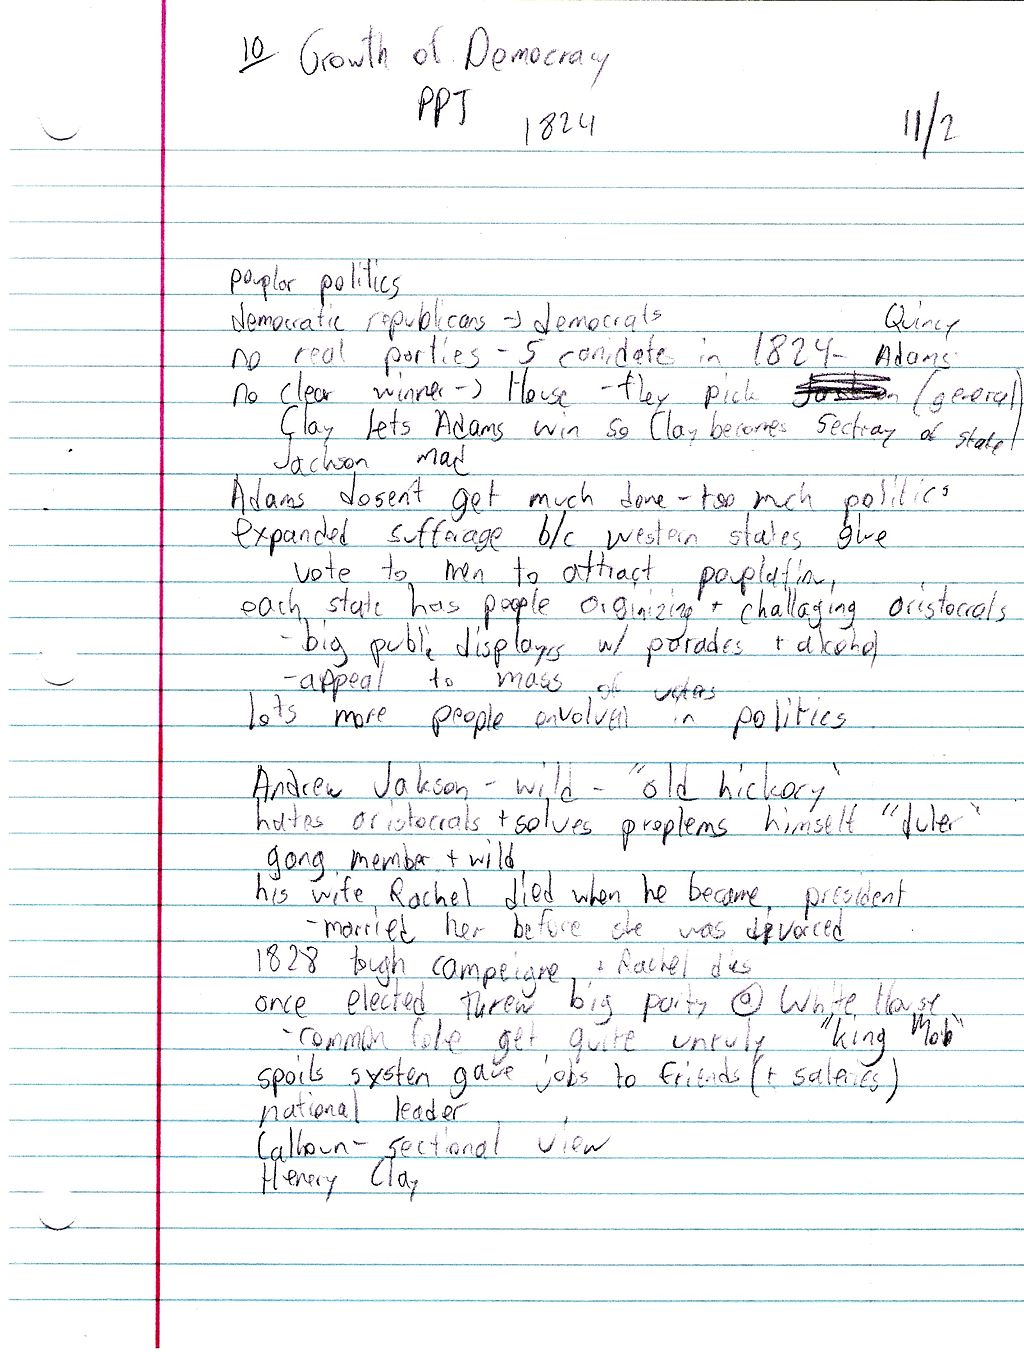 10 Growth of Democracy
PPT
1824
11/2
pouplar politics
democratic republicans → democrats
Quincy
no real parties - 5 canidate in 1824- Adams
no clear winner → House - they pick (general)
Clay lets Adams win so Clay becomes Sectray of state
Jackson mad
Adams dosent get much done - too much politics
expanded sufferage b/c western states give
vote to men to attract pouplation,
each state has people orginizing + challaging aristocrats
- big public displays w/ parades + alcohol
- appeal to mass of votes
lots more people envolved in politics
Andrew Jakson - wild - "old hickory"
hates aristocrats + solves proplems himself "duler"
gang member + wild
his wife Rachel died when he became president
- married her before she was divorced
1828 tough campeigne + Rachel dies
once elected threw big party @ White House
- common folk get quite unruly "King Mob"
spoils system gave jobs to friends (+ saleries)
national leader
Calhoun - sectional view
Henery Clay